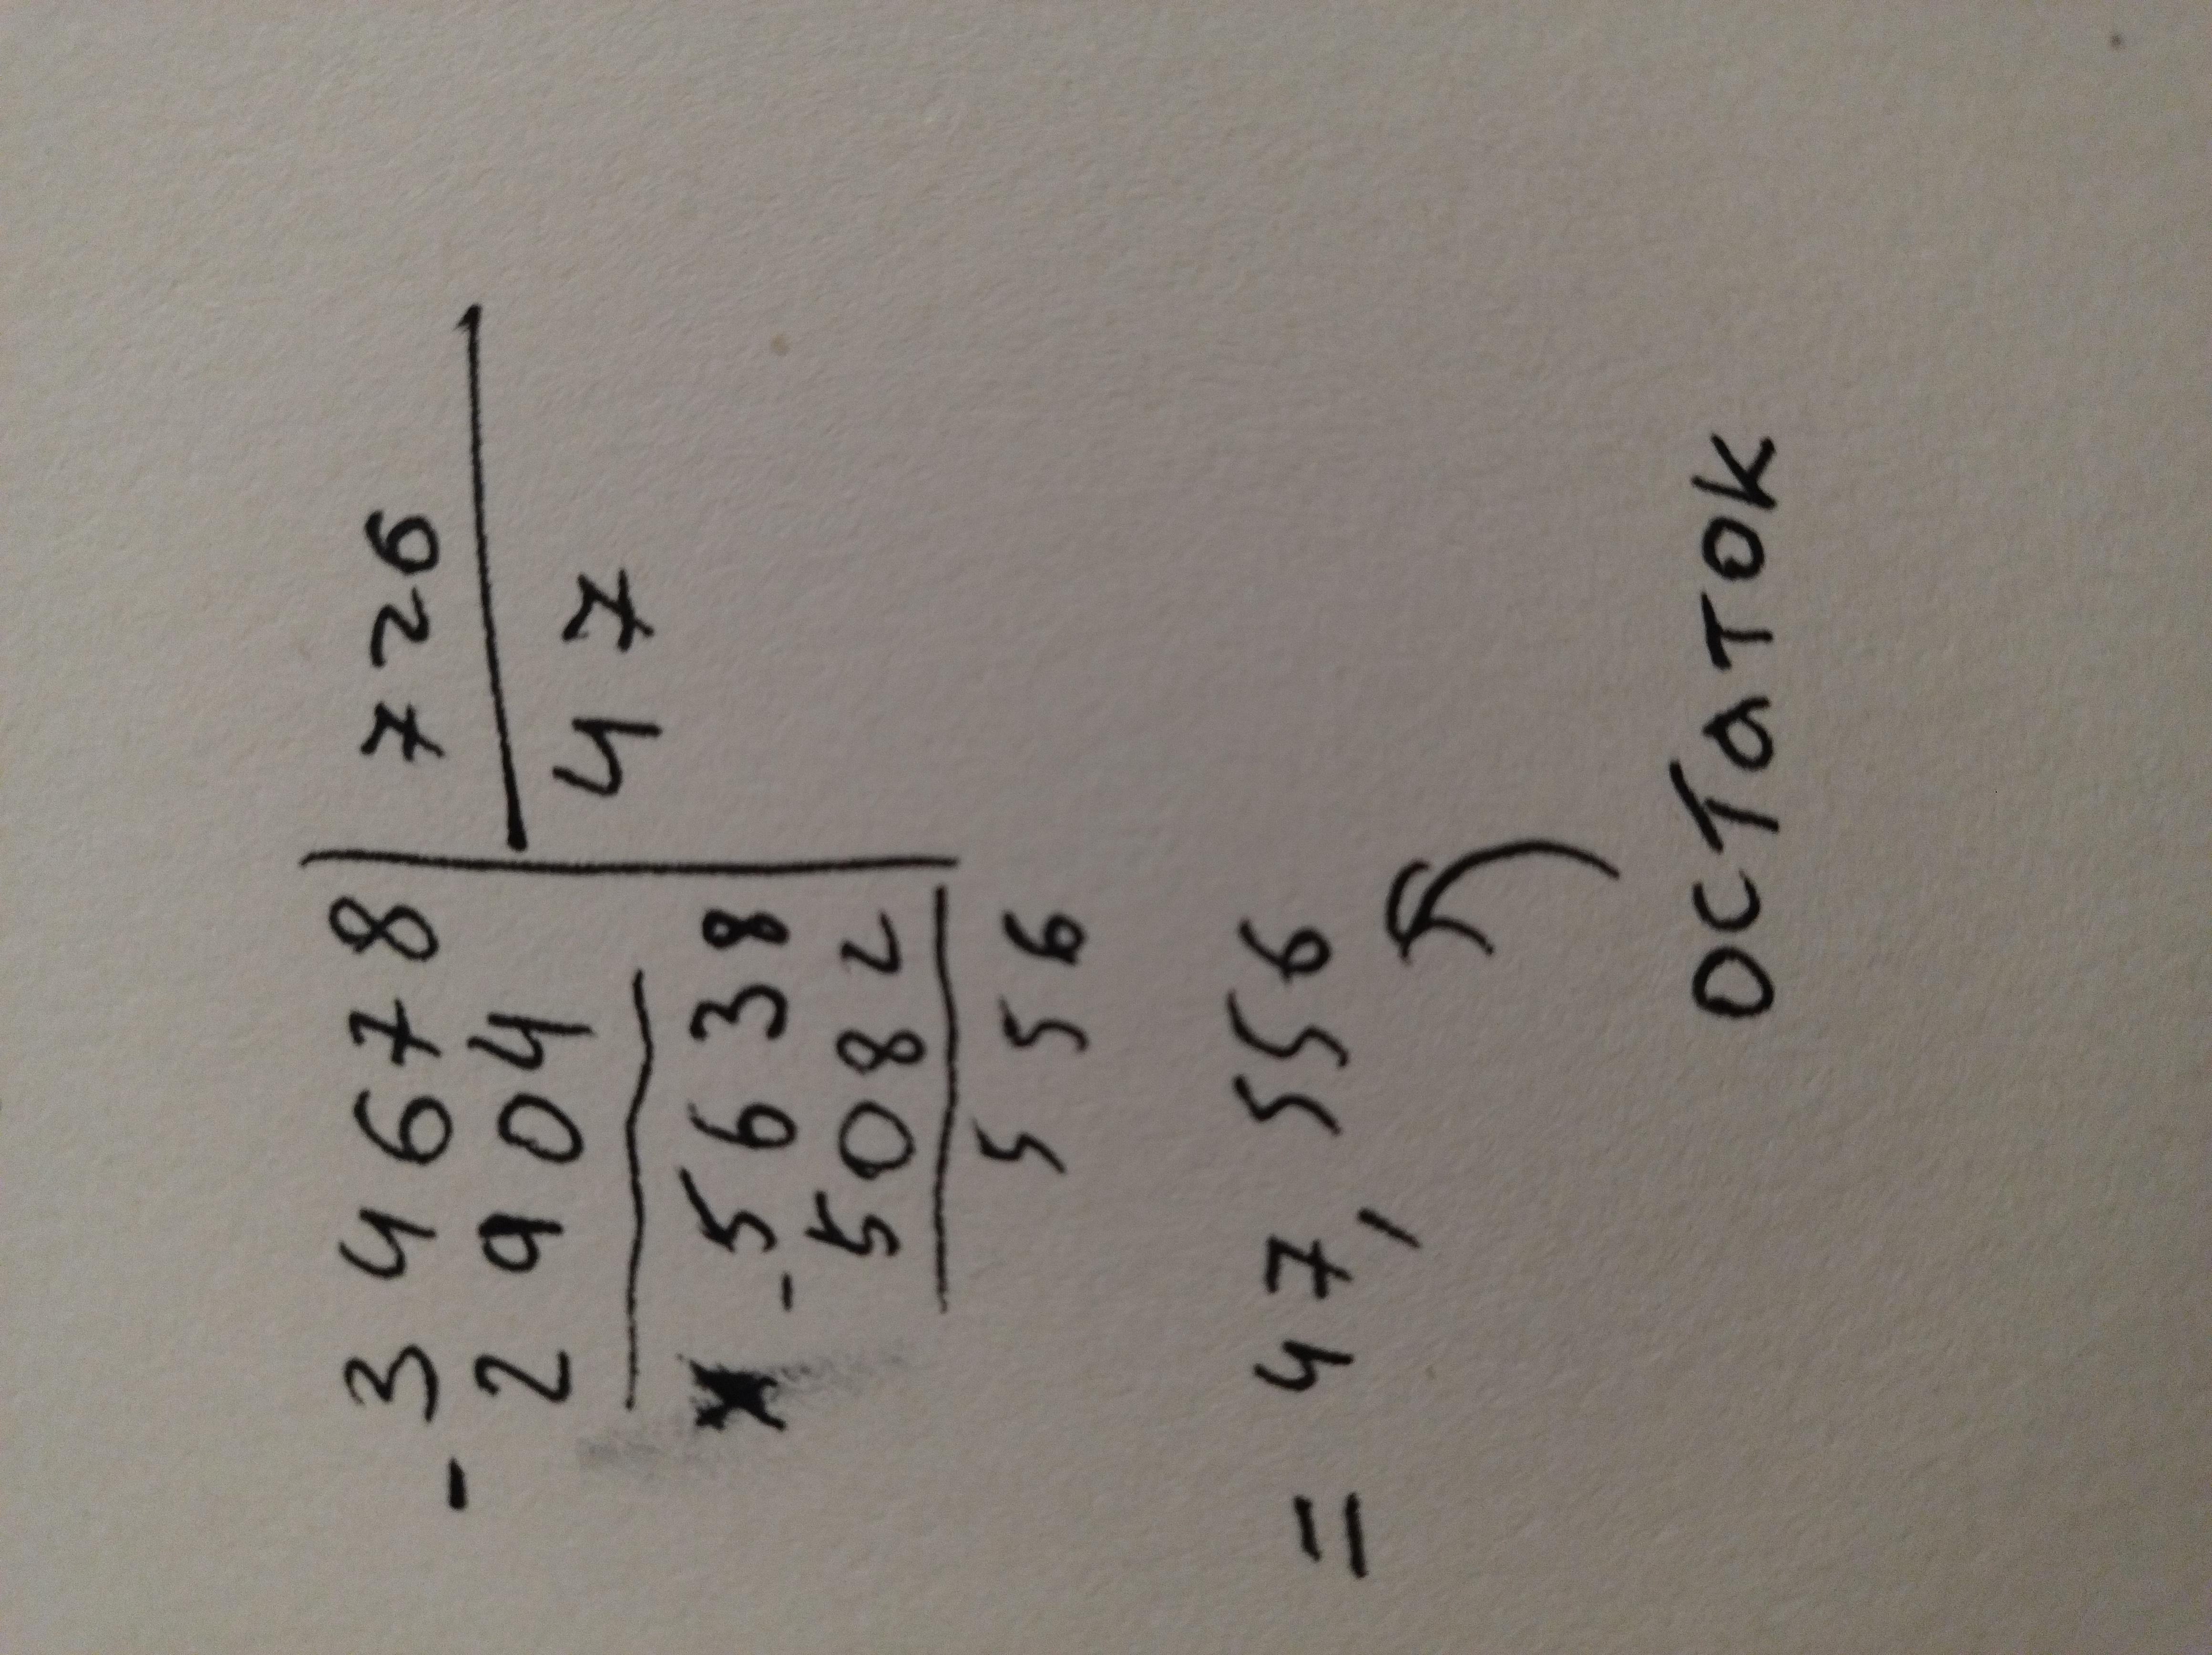 - 34678 726
2904 47
- 5638
5082
556
= 47, 556
остаток